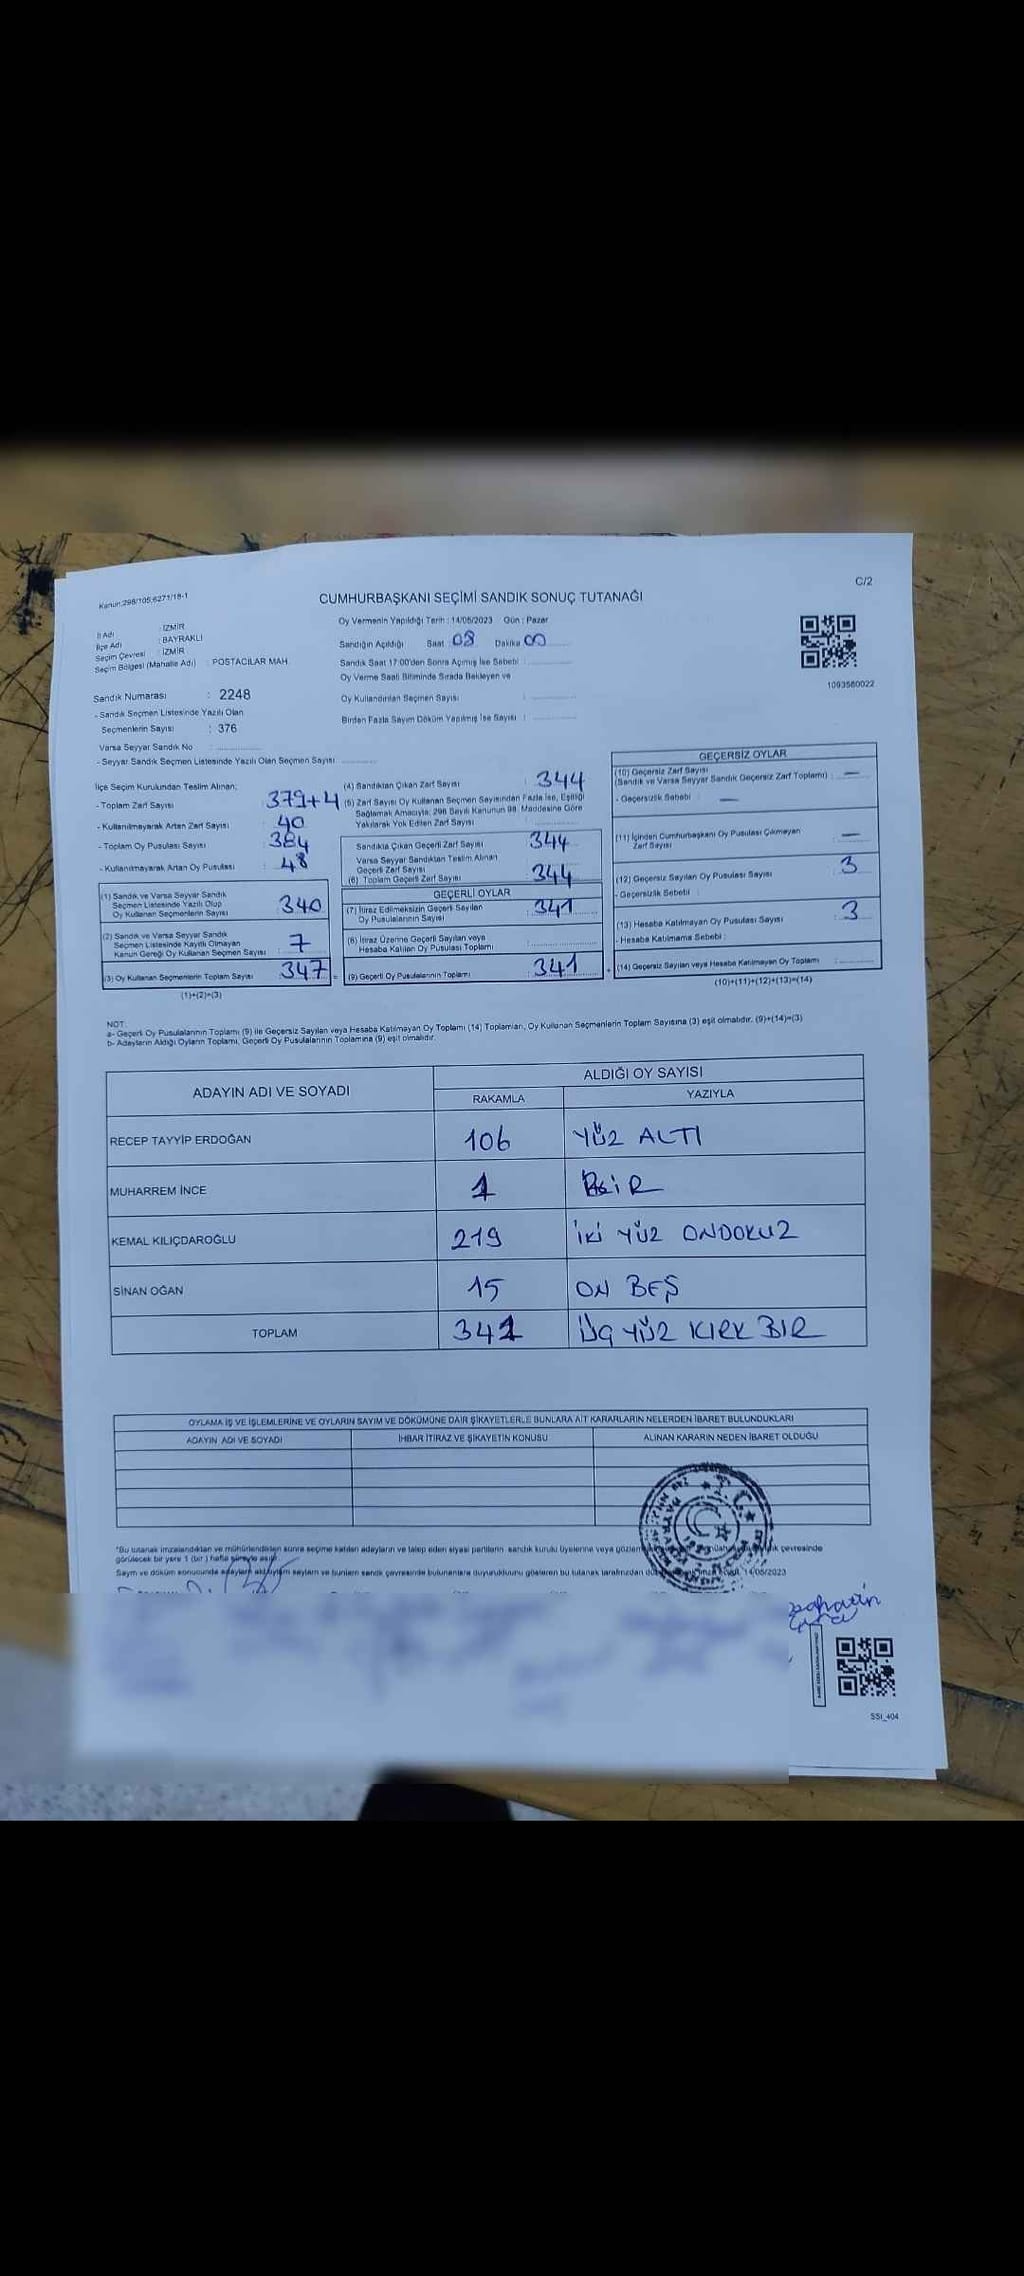 C/2
Kanun:298/105;6271/18-1
CUMHURBAŞKANI SEÇİMİ SANDIK SONUÇ TUTANAĞI
İl Adı : İZMİR
İlçe Adı : BAYRAKLI
Seçim Çevresi : İZMİR
Seçim Bölgesi (Mahalle Adı) : POSTACILAR MAH.
Sandık Numarası : 2248
- Sandık Seçmen Listesinde Yazılı Olan
Seçmenlerin Sayısı : 376
Varsa Seyyar Sandık No :
- Seyyar Sandık Seçmen Listesinde Yazılı Olan Seçmen Sayısı
Oy Vermenin Yapıldığı Tarih : 14/05/2023 Gün : Pazar
Sandığın Açıldığı Saat 08 Dakika 00
Sandık Saat 17:00'den Sonra Açılmış İse Sebebi :
Oy Verme Saati Bitiminde Sırada Bekleyen ve
Oy Kullandırılan Seçmen Sayısı :
Birden Fazla Sayım Döküm Yapılmış İse Sayısı :
1093560022
İlçe Seçim Kurulundan Teslim Alınan;
- Toplam Zarf Sayısı : 379+4
- Kullanılmayarak Artan Zarf Sayısı : 40
- Toplam Oy Pusulası Sayısı : 384
- Kullanılmayarak Artan Oy Pusulası : 48
(1) Sandık ve Varsa Seyyar Sandık
Seçmen Listesinde Yazılı Olup
Oy Kullanan Seçmenlerin Sayısı : 340
(2) Sandık ve Varsa Seyyar Sandık
Seçmen Listesinde Kayıtlı Olmayan
Kanun Gereği Oy Kullanan Seçmen Sayısı : 7
(3) Oy Kullanan Seçmenlerin Toplam Sayısı : 347
(1)+(2)=(3)
(4) Sandıktan Çıkan Zarf Sayısı : 344
(5) Zarf Sayısı Oy Kullanan Seçmen Sayısından Fazla İse, Eşitliği
Sağlamak Amacıyla; 298 Sayılı Kanunun 98. Maddesine Göre
Yakılarak Yok Edilen Zarf Sayısı :
Sandıkta Çıkan Geçerli Zarf Sayısı 344
Varsa Seyyar Sandıktan Teslim Alınan
Geçerli Zarf Sayısı
(6) Toplam Geçerli Zarf Sayısı 344
GEÇERLİ OYLAR
(7) İtiraz Edilmeksizin Geçerli Sayılan
Oy Pusulalarının Sayısı : 341
(8) İtiraz Üzerine Geçerli Sayılan veya
Hesaba Katılan Oy Pusulası Toplamı :
(9) Geçerli Oy Pusulalarının Toplamı : 341
GEÇERSİZ OYLAR
(10) Geçersiz Zarf Sayısı
(Sandık ve Varsa Seyyar Sandık Geçersiz Zarf Toplamı) : —
- Geçersizlik Sebebi : —
(11) İçinden Cumhurbaşkanı Oy Pusulası Çıkmayan
Zarf Sayısı : —
(12) Geçersiz Sayılan Oy Pusulası Sayısı : 3
- Geçersizlik Sebebi :
(13) Hesaba Katılmayan Oy Pusulası Sayısı : 3
- Hesaba Katılmama Sebebi :
(14) Geçersiz Sayılan veya Hesaba Katılmayan Oy Toplamı :
(10)+(11)+(12)+(13)=(14)
NOT:
a- Geçerli Oy Pusulaları Toplamı (9) ile Geçersiz Sayılan veya Hesaba Katılmayan Oy Toplamı (14) Toplamları, Oy Kullanan Seçmenlerin Toplam Sayısına (3) eşit olmalıdır. (9)+(14)=(3)
b- Adayların Aldığı Oyların Toplamı, Geçerli Oy Pusulalarının Toplamına (9) eşit olmalıdır.
ADAYIN ADI VE SOYADI ALDIĞI OY SAYISI
RAKAMLA YAZIYLA
RECEP TAYYİP ERDOĞAN 106 YÜZ ALTI
MUHARREM İNCE 1 BİR
KEMAL KILIÇDAROĞLU 219 İKİ YÜZ ONDOKUZ
SİNAN OĞAN 15 ON BEŞ
TOPLAM 341 ÜÇ YÜZ KIRK BİR
OYLAMA İŞ VE İŞLEMLERİNE VE OYLARIN SAYIM VE DÖKÜMÜNE DAİR ŞİKAYETLERLE BUNLARA AİT KARARLARIN NELERDEN İBARET BULUNDUKLARI
ADAYIN ADI VE SOYADI İHBAR İTİRAZ VE ŞİKAYETİN KONUSU ALINAN KARARIN NEDEN İBARET OLDUĞU
*Bu tutanak imzalandıktan ve mühürlendikten sonra seçime katılan adayların ve talep eden siyasi partilerin sandık kurulu üyelerine veya çevresinde
görülecek bir yere 1 (bir) hafta süreyle asılır.
Sayım ve döküm sonucunda adayların aldığı oyların sayıları ve bunların sandık çevresinde bulunanlara duyurulduğunu gösteren bu tutanak tarafımızdan 14/05/2023
SSI_404